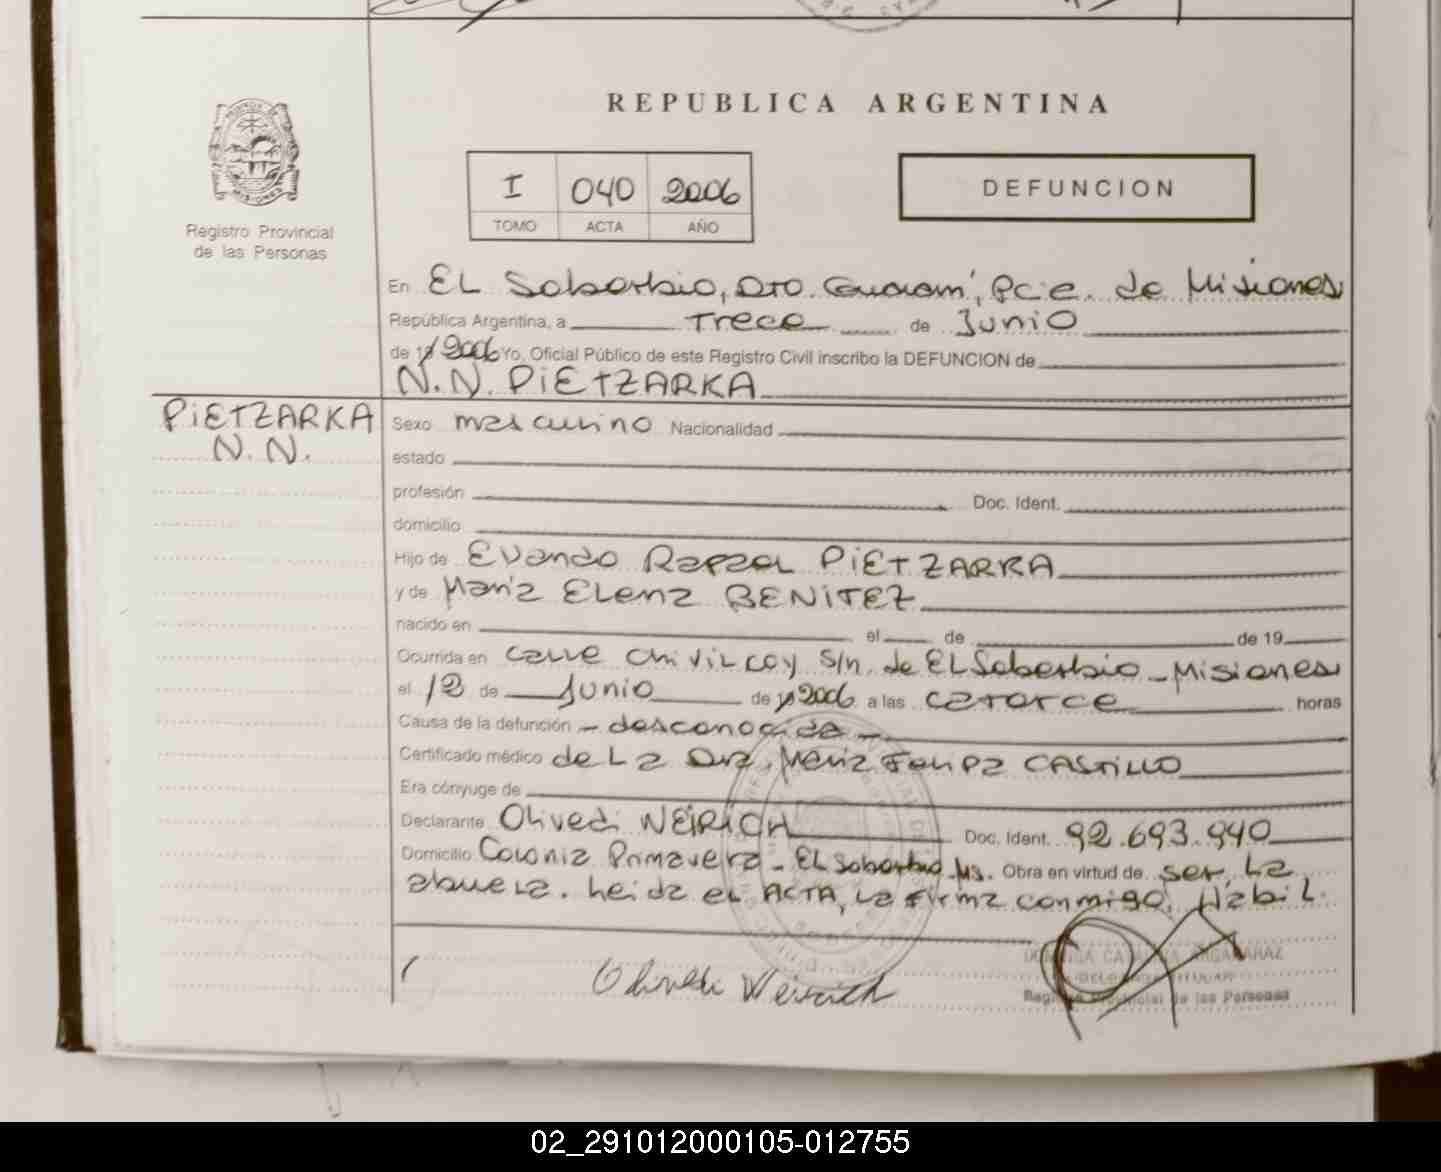 REPUBLICA ARGENTINA
I 040 2006
TOMO ACTA AÑO
DEFUNCION
Registro Provincial
de las Personas
En EL Soberbio, Dto. Guaraní, Pcie. de Misiones
República Argentina, a Trece de Junio
de 19 2006 Yo, Oficial Público de este Registro Civil inscribo la DEFUNCION de
N.N. PiETZARKA
PiETZARKA
N.N.
Sexo masculino Nacionalidad
estado
profesión Doc. Ident.
domicilio
Hijo de Evando Rafael PiETZARKA
y de Maria Elena BENiTEZ
nacido en el de de 19
Ocurrida en calle Chivilcoy s/n. de EL Soberbio - Misiones
el 12 de Junio de 19 2006 a las catorce horas
Causa de la defunción - desconocida -
Certificado médico de La Dra. Maria Felipa CASTILLO
Era cónyuge de
Declarante Olivedi NEiRiCH Doc. Ident. 92.693.940
Domicilio Colonia Primavera - EL Soberbio Ms. Obra en virtud de ser La
abuela. Leida el ACTA, La firma conmigo. Habil.
Olivedi Weirich
Registro Provincial de las Personas
02_291012000105-012755